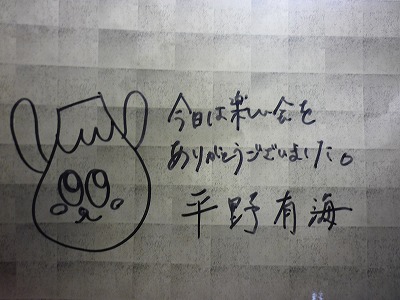 今日は楽しい会を
ありがとうございました。
平野有海